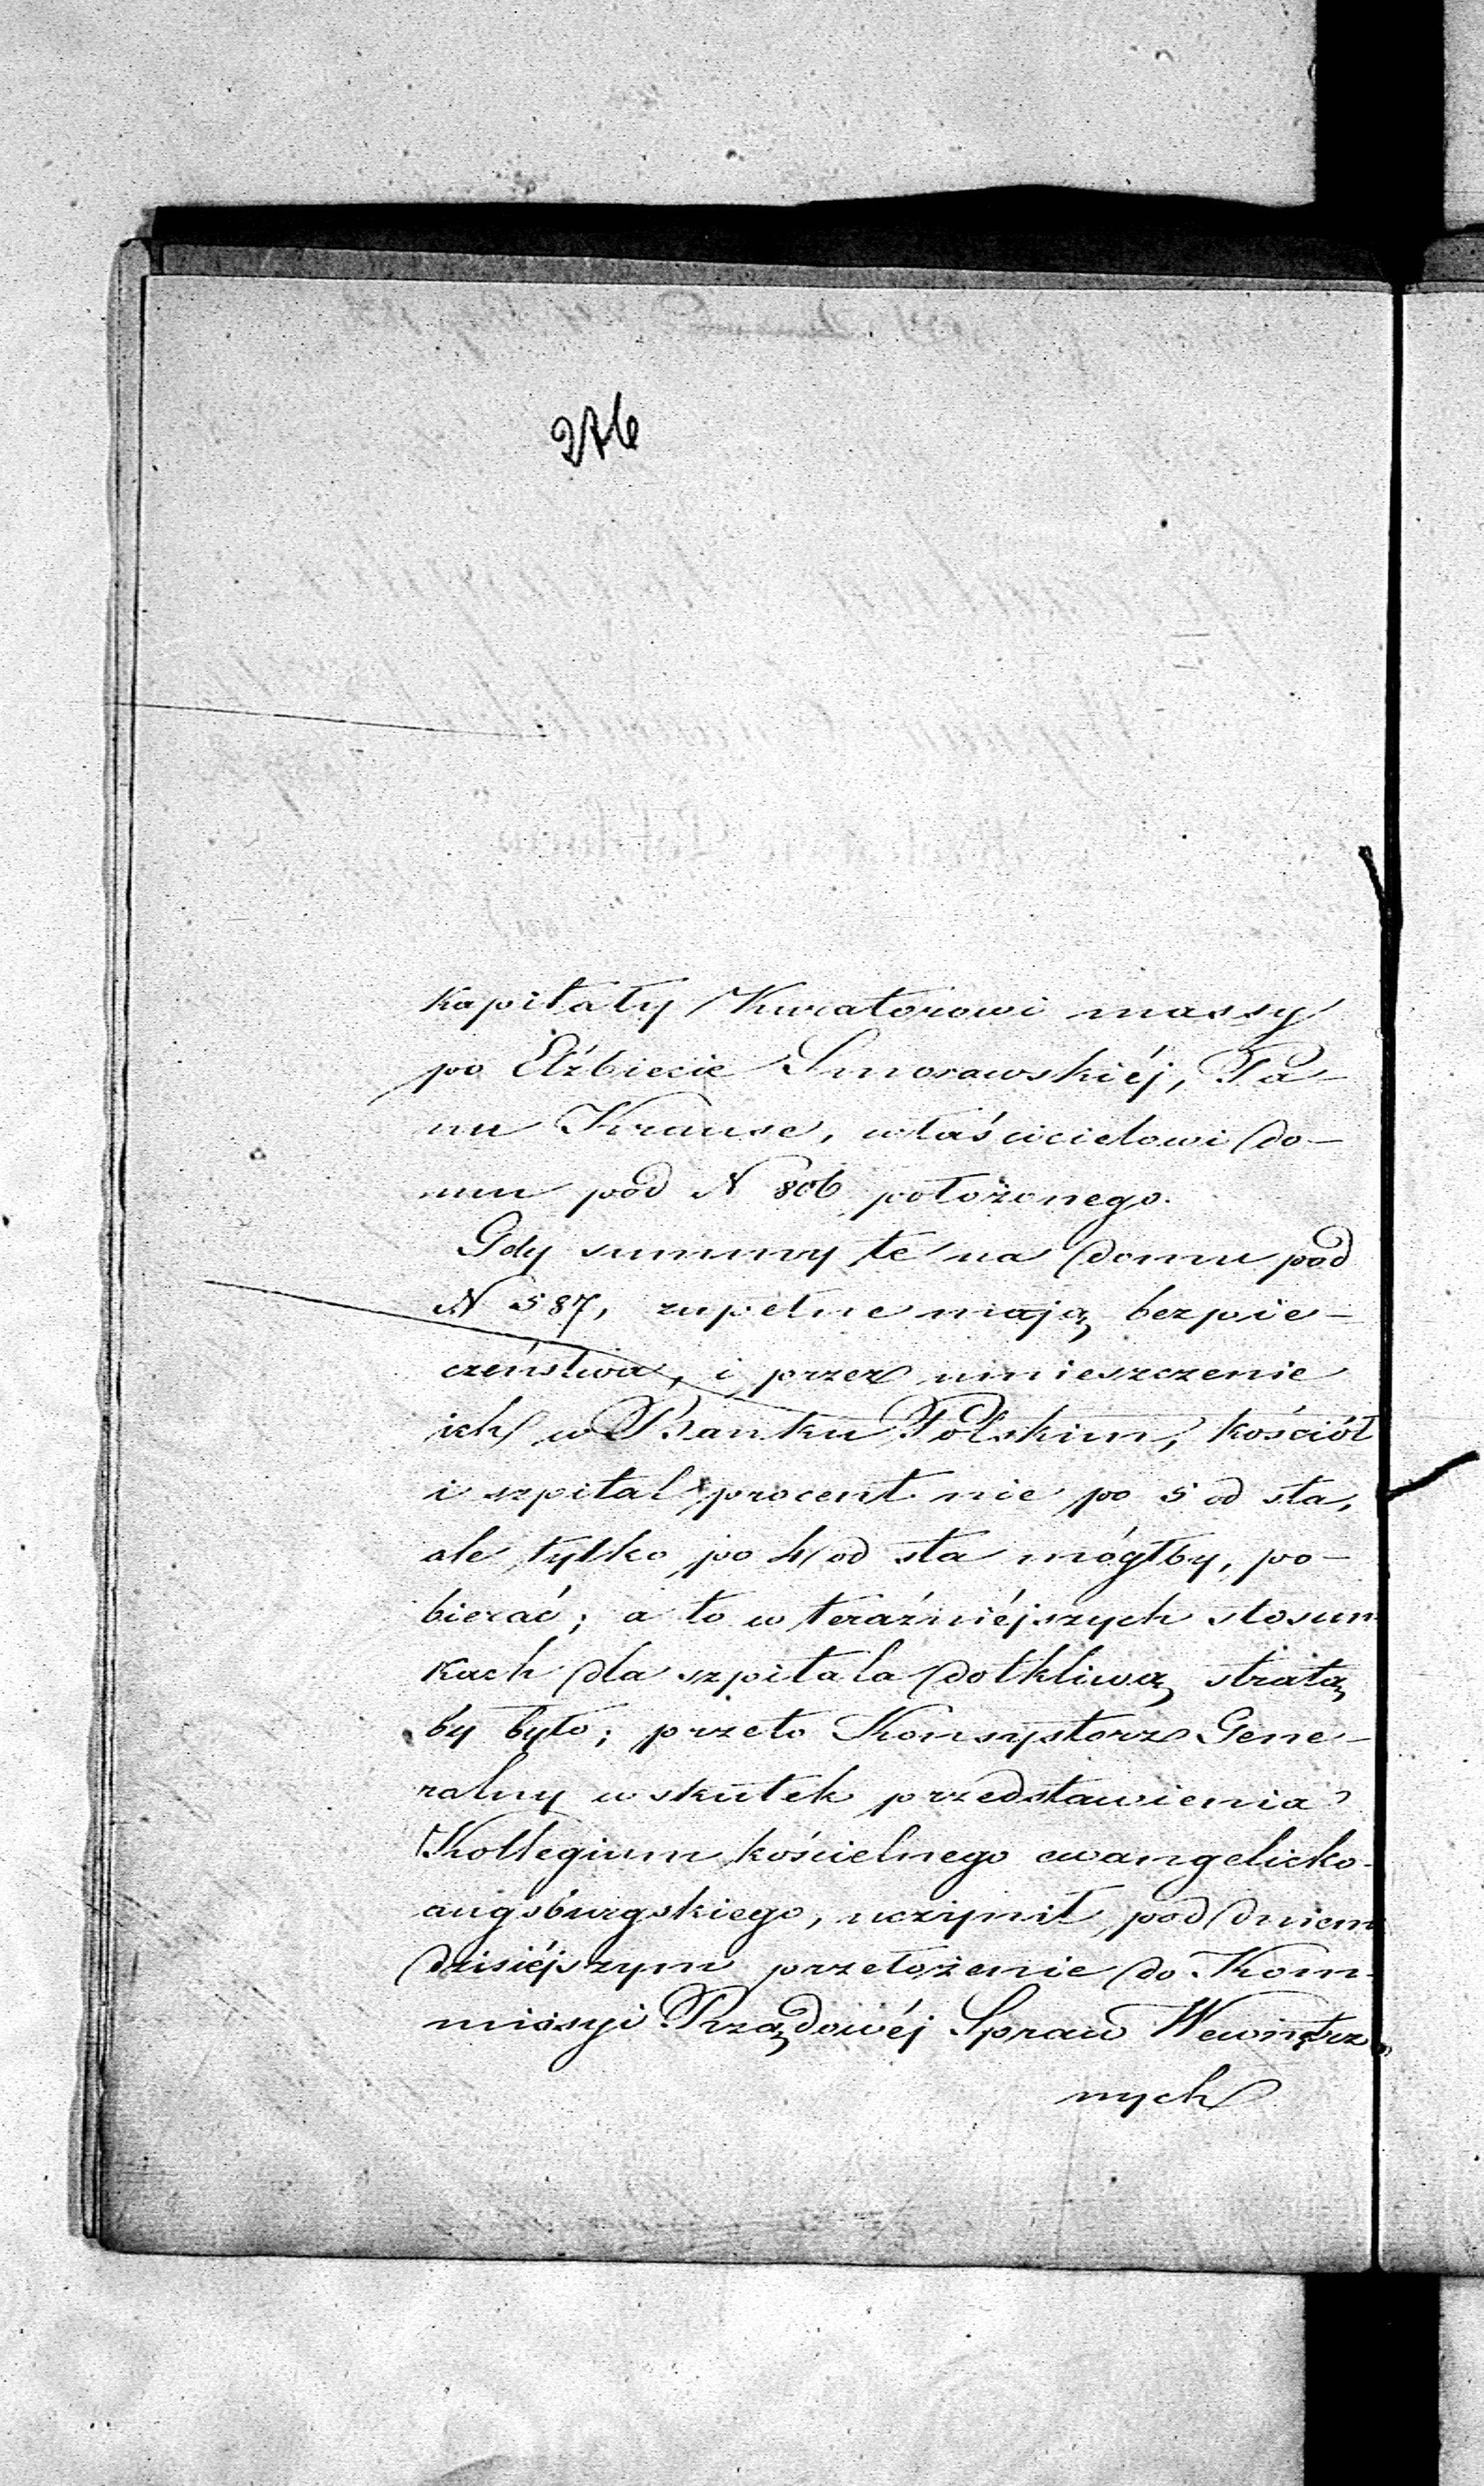 276
kapitały Kuratorowi massy
po Elżbiecie Smorawskiéj, Pa-
nu Krause, właścicielowi do-
mu pod N 806 położonego.
Gdy summy te na domu pod
N 587, zupełne mają bezpie-
czeństwa, i przez umieszczenie
ich w Banku Polskim, kościół
i szpital procent nie po 5 od sta,
ale tylko po 4 od sta mógłby, po-
bierać; a to w teraźniéjszych stosun-
kach dla szpitala dotkliwą stratą
by było; przeto Konsystorz Gene-
ralny w skutek przedstawienia
Kollegium kościelnego ewangelicko-
augsburgskiego, uczynił pod dniem
dzisiéjszym przełożenie do Kom-
missyi Rządowéj Spraw Wewnętrz-
nych